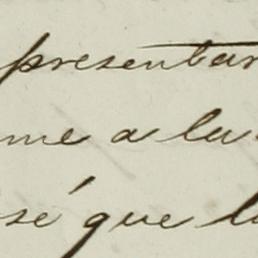 presentar
me a la
sé que l